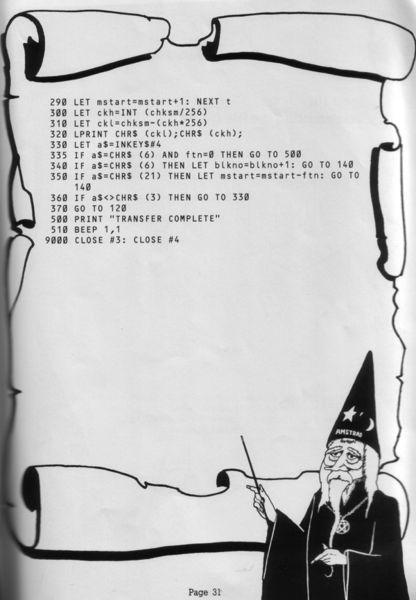 290 LET mstart=mstart+1: NEXT t
300 LET ckh=INT (chksm/256)
310 LET ckl=chksm-(ckh*256)
320 LPRINT CHR$ (ckl);CHR$ (ckh);
330 LET a$=INKEY$#4
335 IF a$=CHR$ (6) AND ftn=0 THEN GO TO 500
340 IF a$=CHR$ (6) THEN LET blkno=blkno+1: GO TO 140
350 IF a$=CHR$ (21) THEN LET mstart=mstart-ftn: GO TO
140
360 IF a$<>CHR$ (3) THEN GO TO 330
370 GO TO 120
500 PRINT "TRANSFER COMPLETE"
510 BEEP 1,1
9000 CLOSE #3: CLOSE #4
AMSTRAD
Page 31